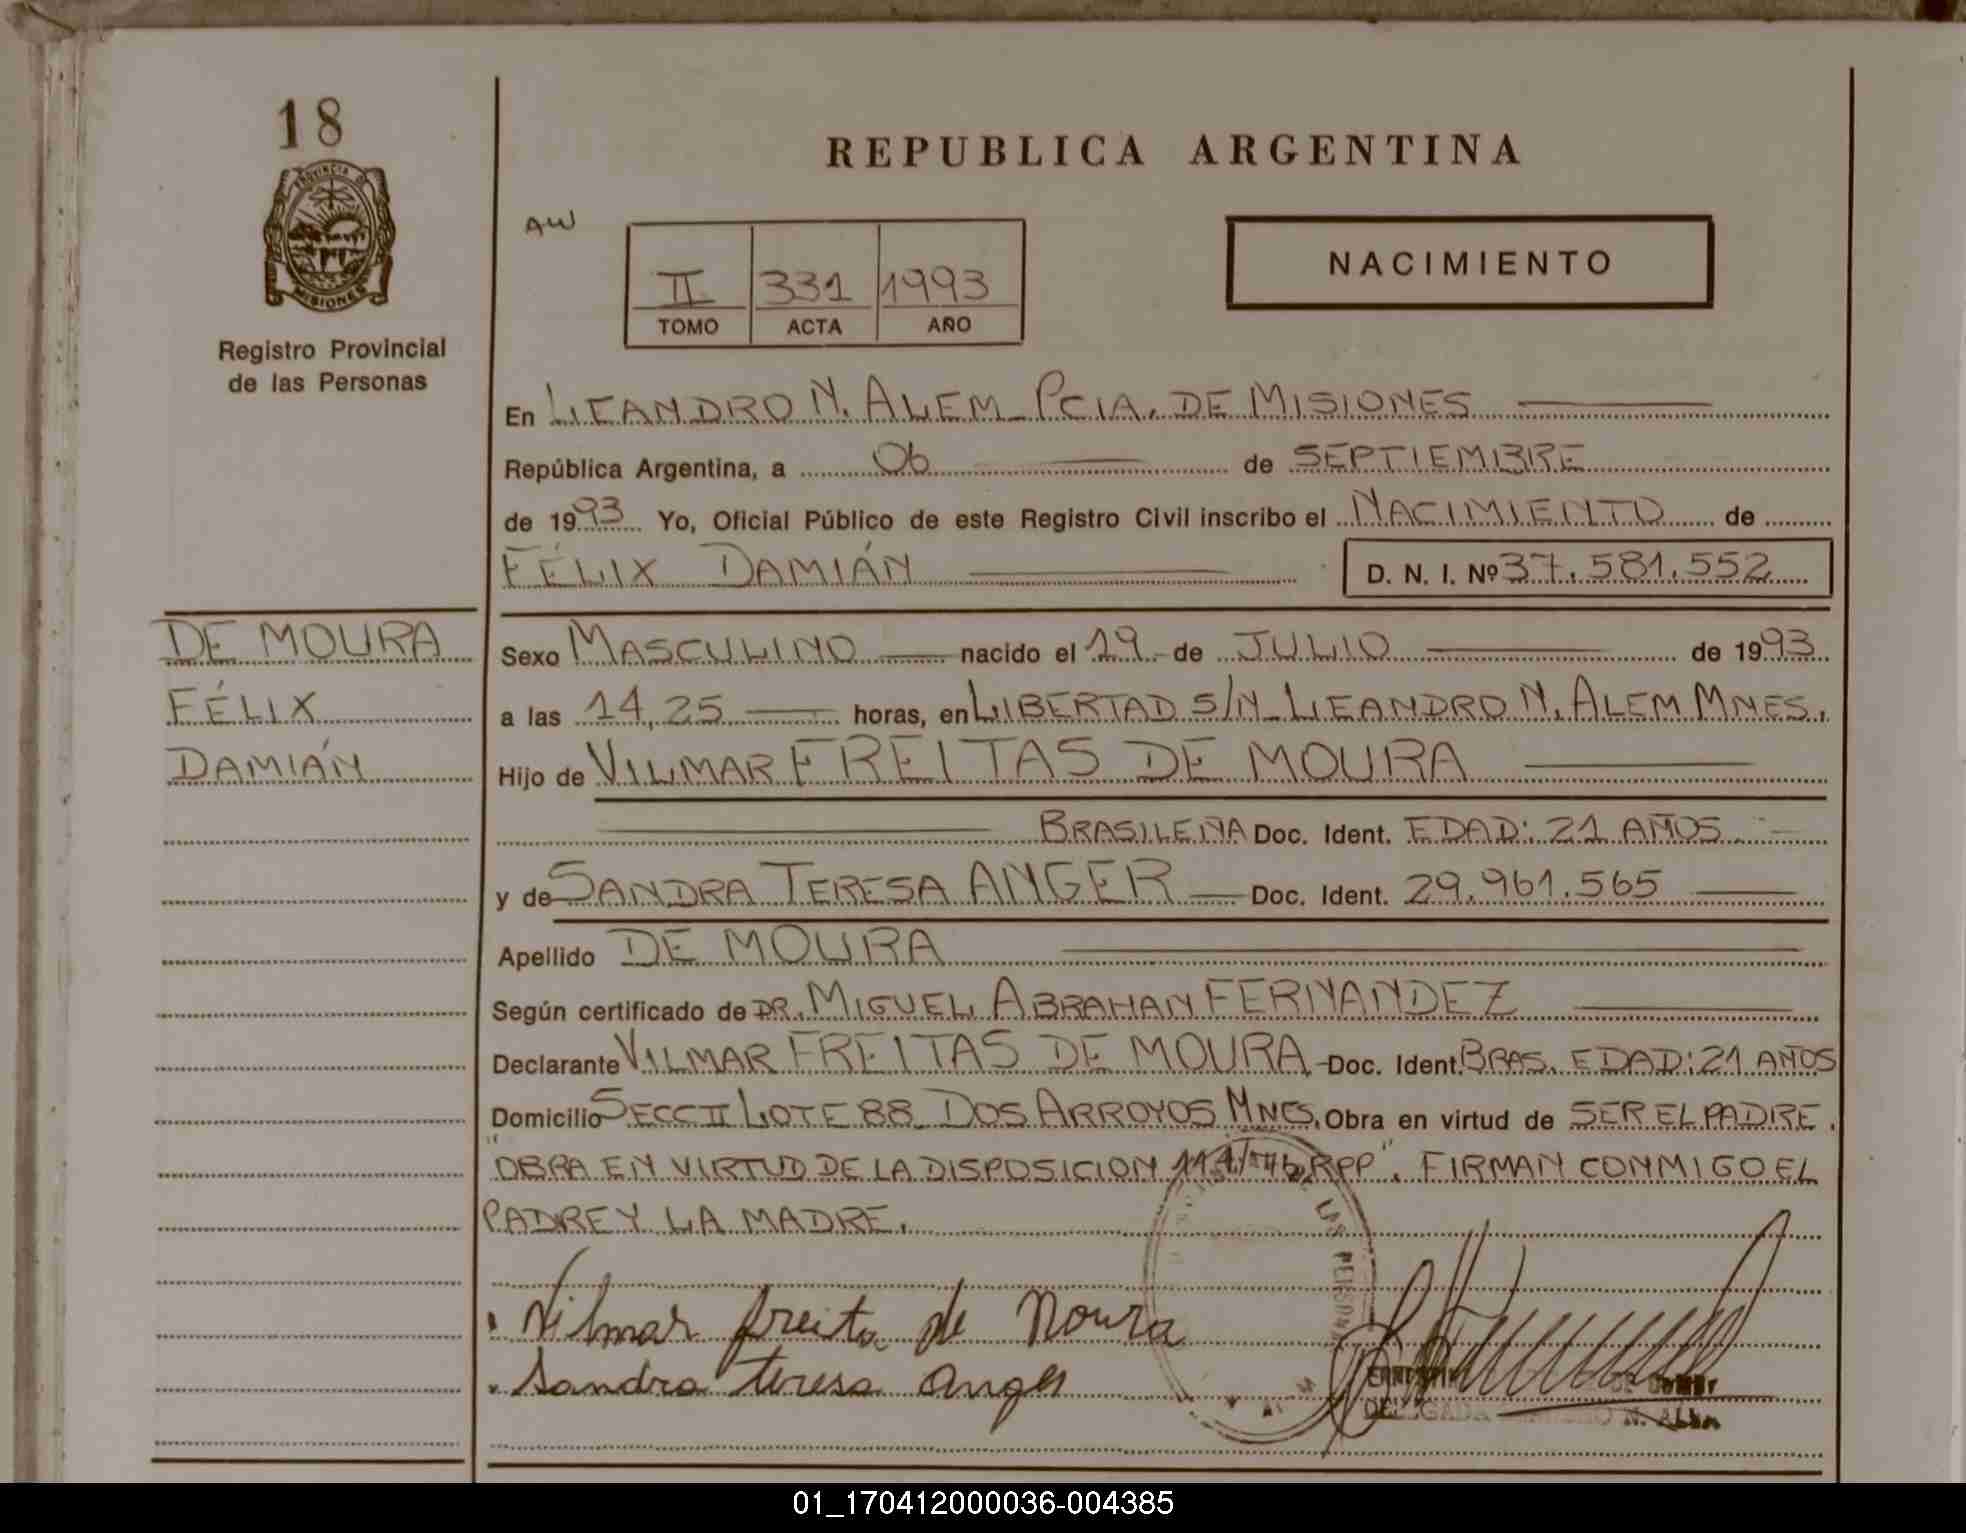 18
PROVINCIA DE
MISIONES
Registro Provincial
de las Personas
REPUBLICA ARGENTINA
AW
II 331 1993
TOMO ACTA AÑO
NACIMIENTO
En LEANDRO N. ALEM PCIA. DE MISIONES
República Argentina, a 06 de SEPTIEMBRE
de 1993 Yo, Oficial Público de este Registro Civil inscribo el NACIMIENTO de
FÉLIX DAMIÁN D. N. I. Nº 37.581.552
DE MOURA
FÉLIX
DAMIÁN
Sexo MASCULINO nacido el 19 de JULIO de 1993
a las 14,25 horas, en LIBERTAD S/N LEANDRO N. ALEM MNES.
Hijo de VILMAR FREITAS DE MOURA
BRASILEÑA Doc. Ident. EDAD: 21 AÑOS
y de SANDRA TERESA ANGER Doc. Ident. 29.961.565
Apellido DE MOURA
Según certificado de DR. MIGUEL ABRAHAN FERNANDEZ
Declarante VILMAR FREITAS DE MOURA Doc. Ident. BRAS. EDAD: 21 AÑOS
Domicilio SECC II LOTE 88 DOS ARROYOS MNES. Obra en virtud de SER EL PADRE.
"OBRA EN VIRTUD DE LA DISPOSICION 114/76 RPP". FIRMAN CONMIGO EL
PADRE Y LA MADRE.
Vilmar freita de Moura
Sandra teresa Anger
DE LAS PERSONAS
DELEGADA N. ALEM
01_170412000036-004385